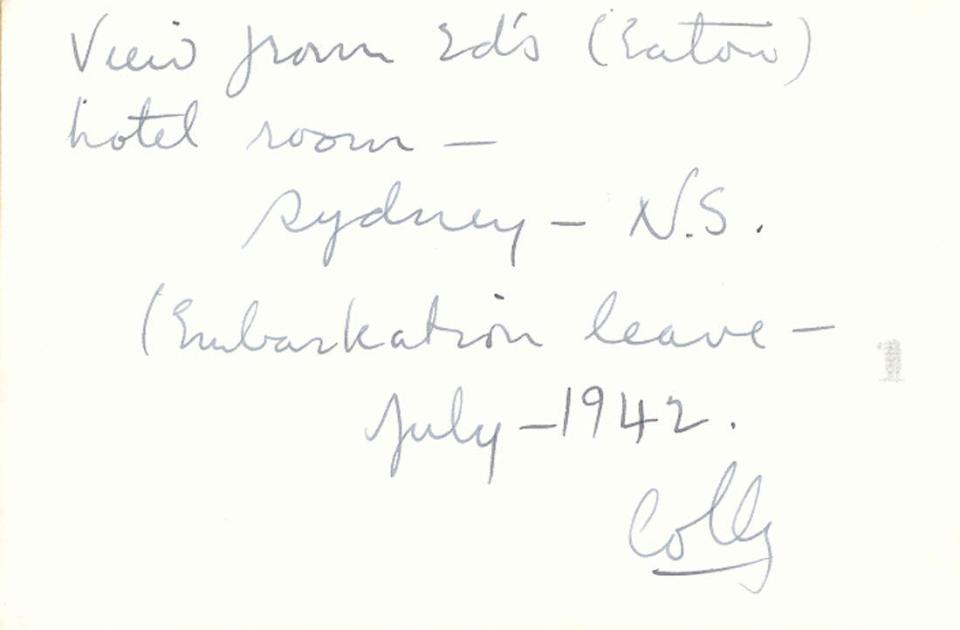 View from Ed's (Eaton)
hotel room —
Sydney — N.S.
(Embarkation leave —
1
July — 1942.
Colly